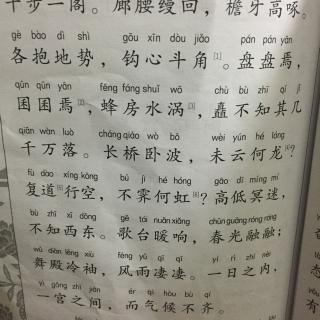 十步一阁。廊腰缦回，檐牙高啄。
gè bào dì shì gōu xīn dòu jiǎo pán pán yān
各抱地势，钩心斗角[1]。盘盘焉，
qūn qūn yān fēng fáng shuǐ wō chù bù zhī qí jǐ
囷囷焉[2]，蜂房水涡[3]，矗不知其几
qiān wàn luò cháng qiáo wò bō wèi yún hé lóng
千万落。长桥卧波，未云何龙[4]？
fù dào xíng kōng bú jì hé hóng gāo dī míng mí
复道[5]行空，不霁何虹[6]？高低冥迷，
bù zhī xī dōng gē tái nuǎn xiǎng chūn guāng róng róng
不知西东。歌台暖响，春光融融；
wǔ diàn lěng xiù fēng yǔ qī qī yí rì zhī nèi
舞殿冷袖，风雨凄凄。一日之内，
yì gōng zhī jiān ér qì hòu bù qí
一宫之间，而气候不齐。